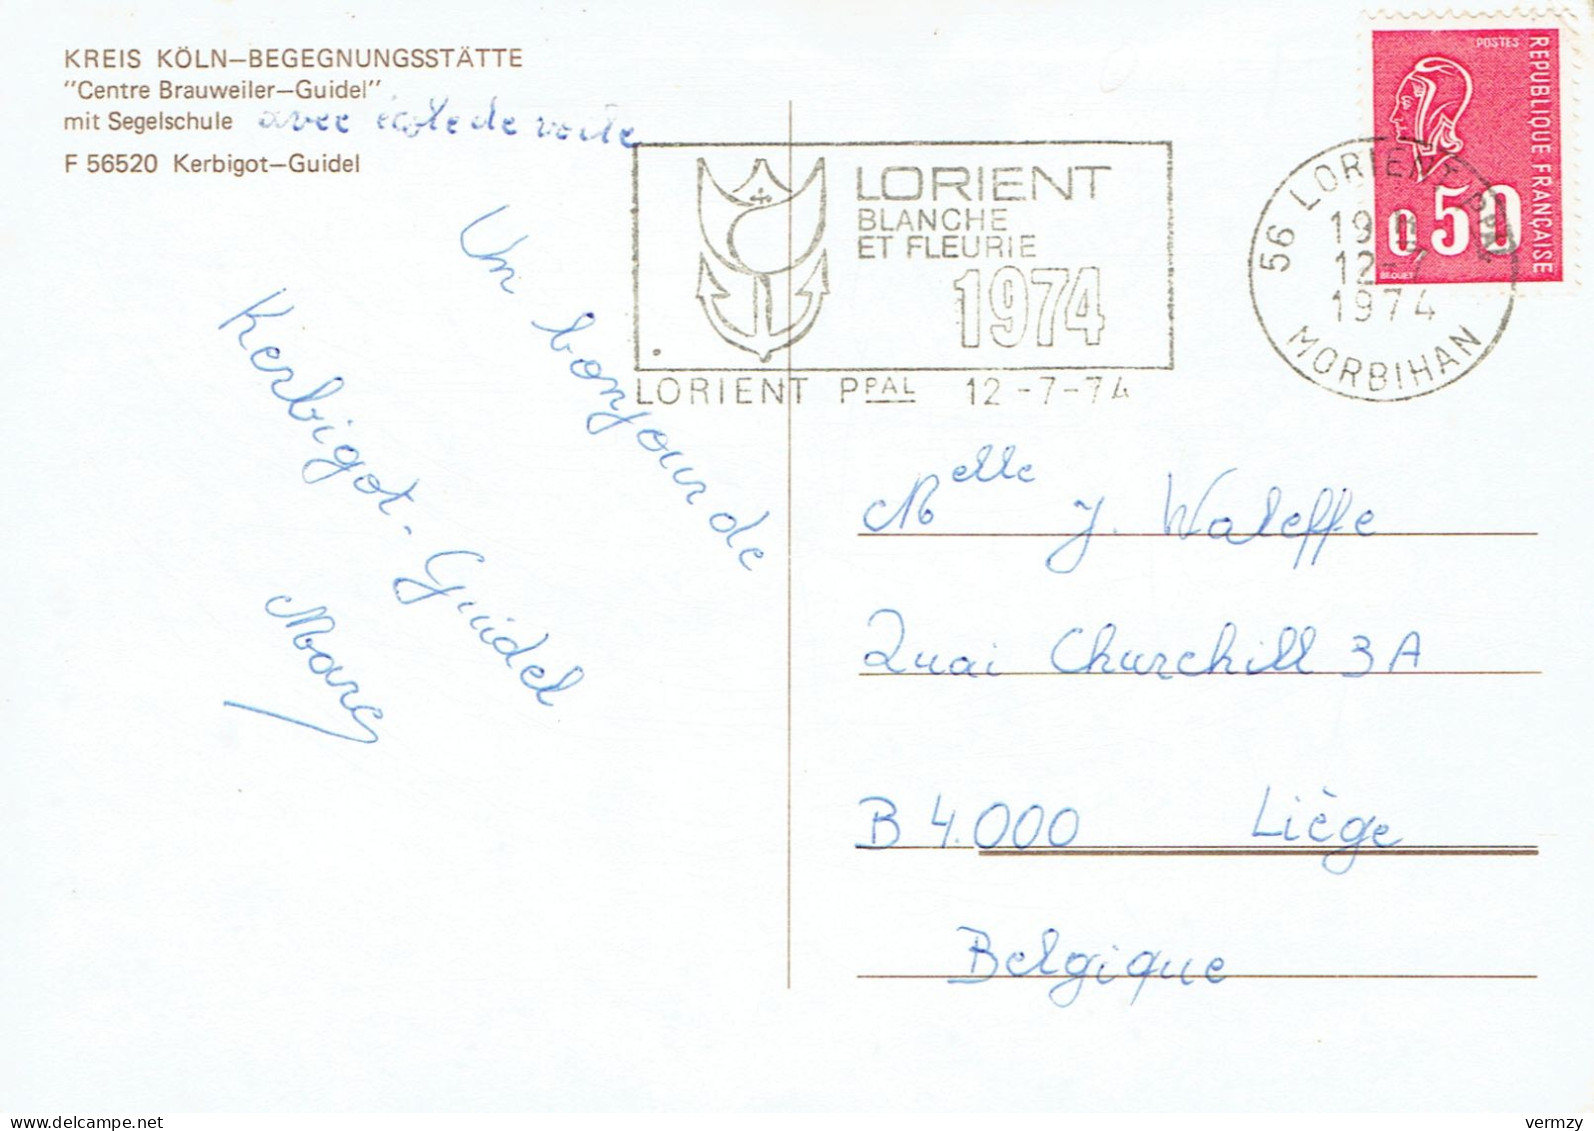 KREIS KÖLN–BEGEGNUNGSSTÄTTE
"Centre Brauweiler–Guidel"
mit Segelschule avec école de voile
F 56520 Kerbigot–Guidel
POSTES
REPUBLIQUE FRANÇAISE
0,50
BEQUET
LORIENT
BLANCHE
ET FLEURIE
1974
LORIENT PPAL 12-7-74
56 LORIENT PPAL
19H
12-7
1974
MORBIHAN
Un bonjour de
Kerbigot-Guidel
Marc
Melle J. Waleffe
Quai Churchill 3A
B 4.000 Liège
Belgique
www.delcampe.net
vermzy